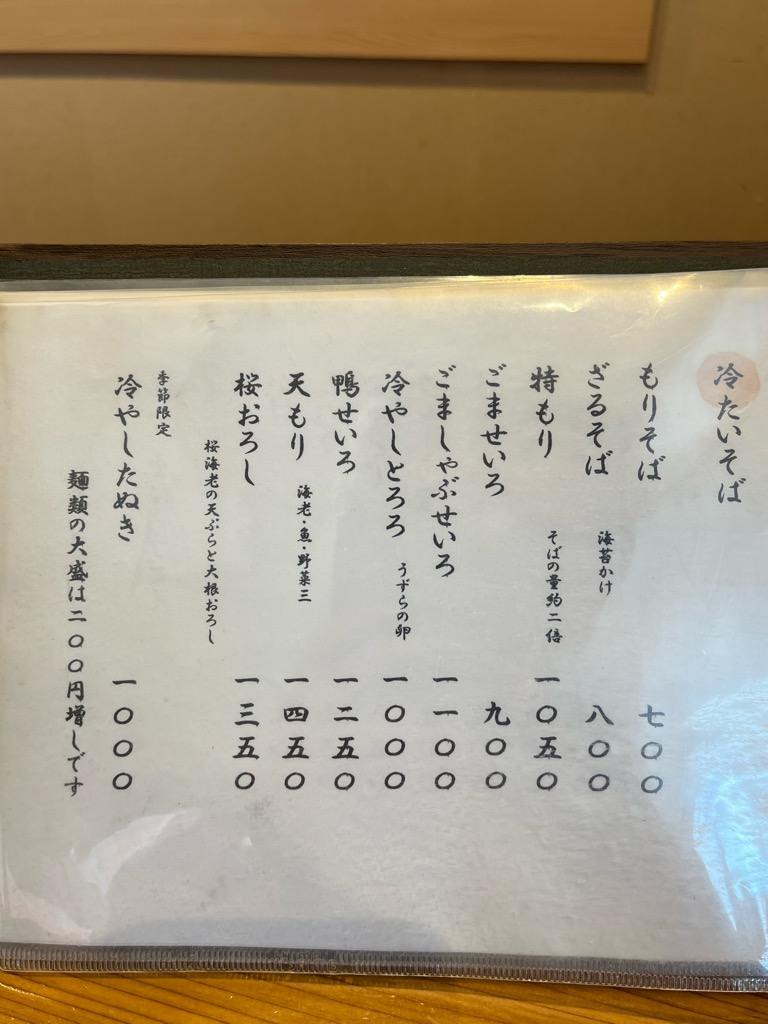 冷たいそば
もりそば 七〇〇
ざるそば 海苔かけ 八〇〇
特もり そばの量約二倍 一〇五〇
ごませいろ 九〇〇
ごましゃぶせいろ 一一〇〇
冷やしとろろ うずらの卵 一〇〇〇
鴨せいろ 一二五〇
天もり 海老・魚・野菜三 一四五〇
桜おろし 一三五〇
桜海老の天ぷらと大根おろし
季節限定
冷やしたぬき 一〇〇〇
麺類の大盛は二〇〇円増しです